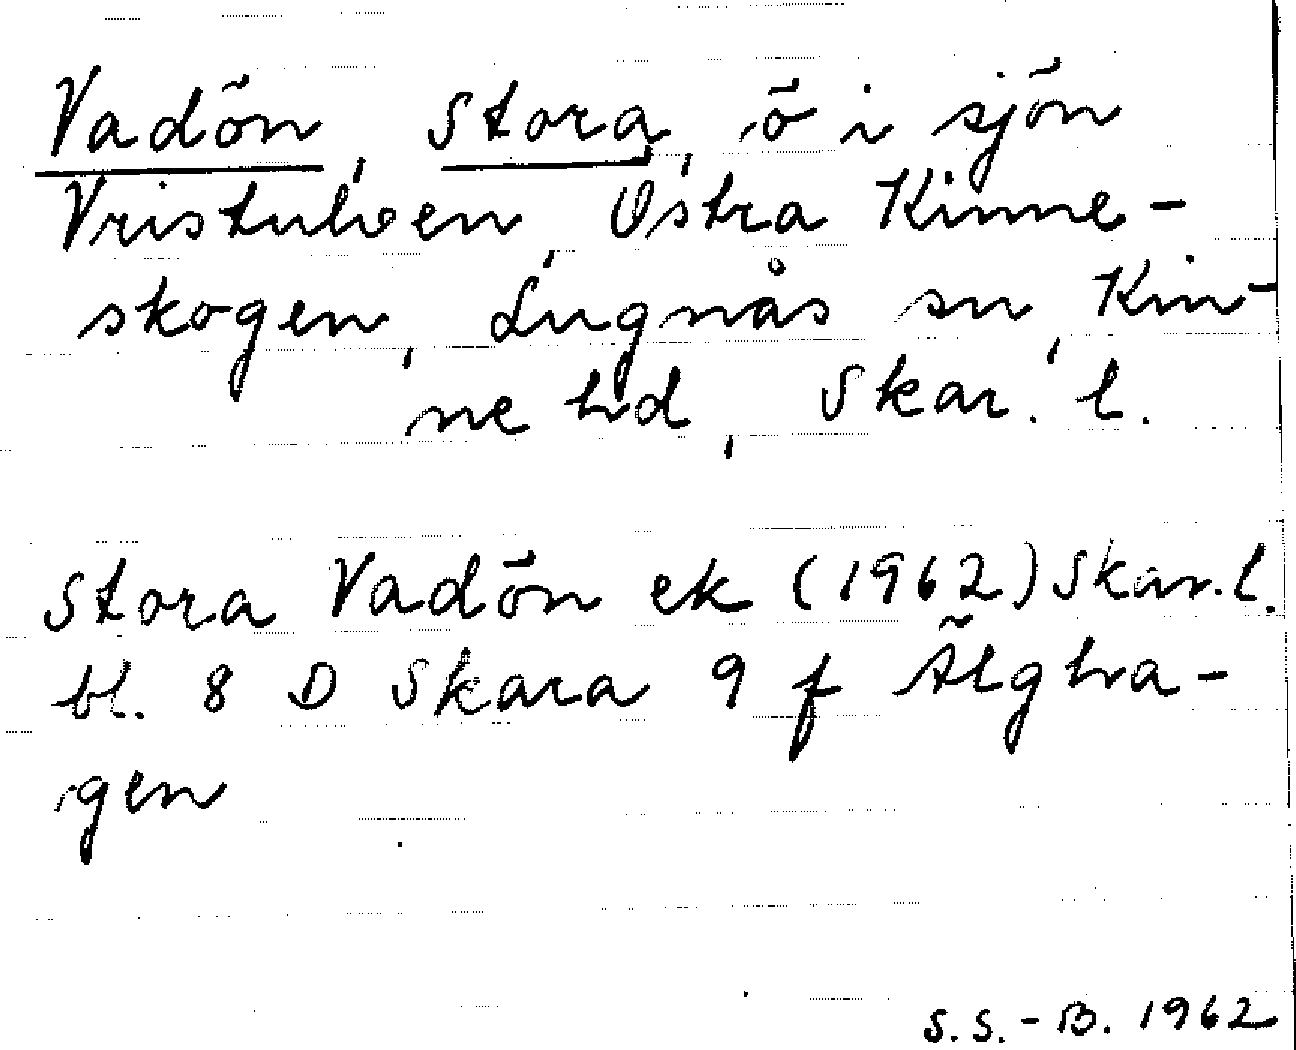 Vadön, Stora, ö i sjön
Vristulven, Östra Kinne-
skogen, Lugnås sn, Kin-
ne hd, Skar. l.
Stora Vadön ek (1962) Skar. l.
bl. 8 D Skara 9 f Älgha-
gen
S. S. - B. 1962